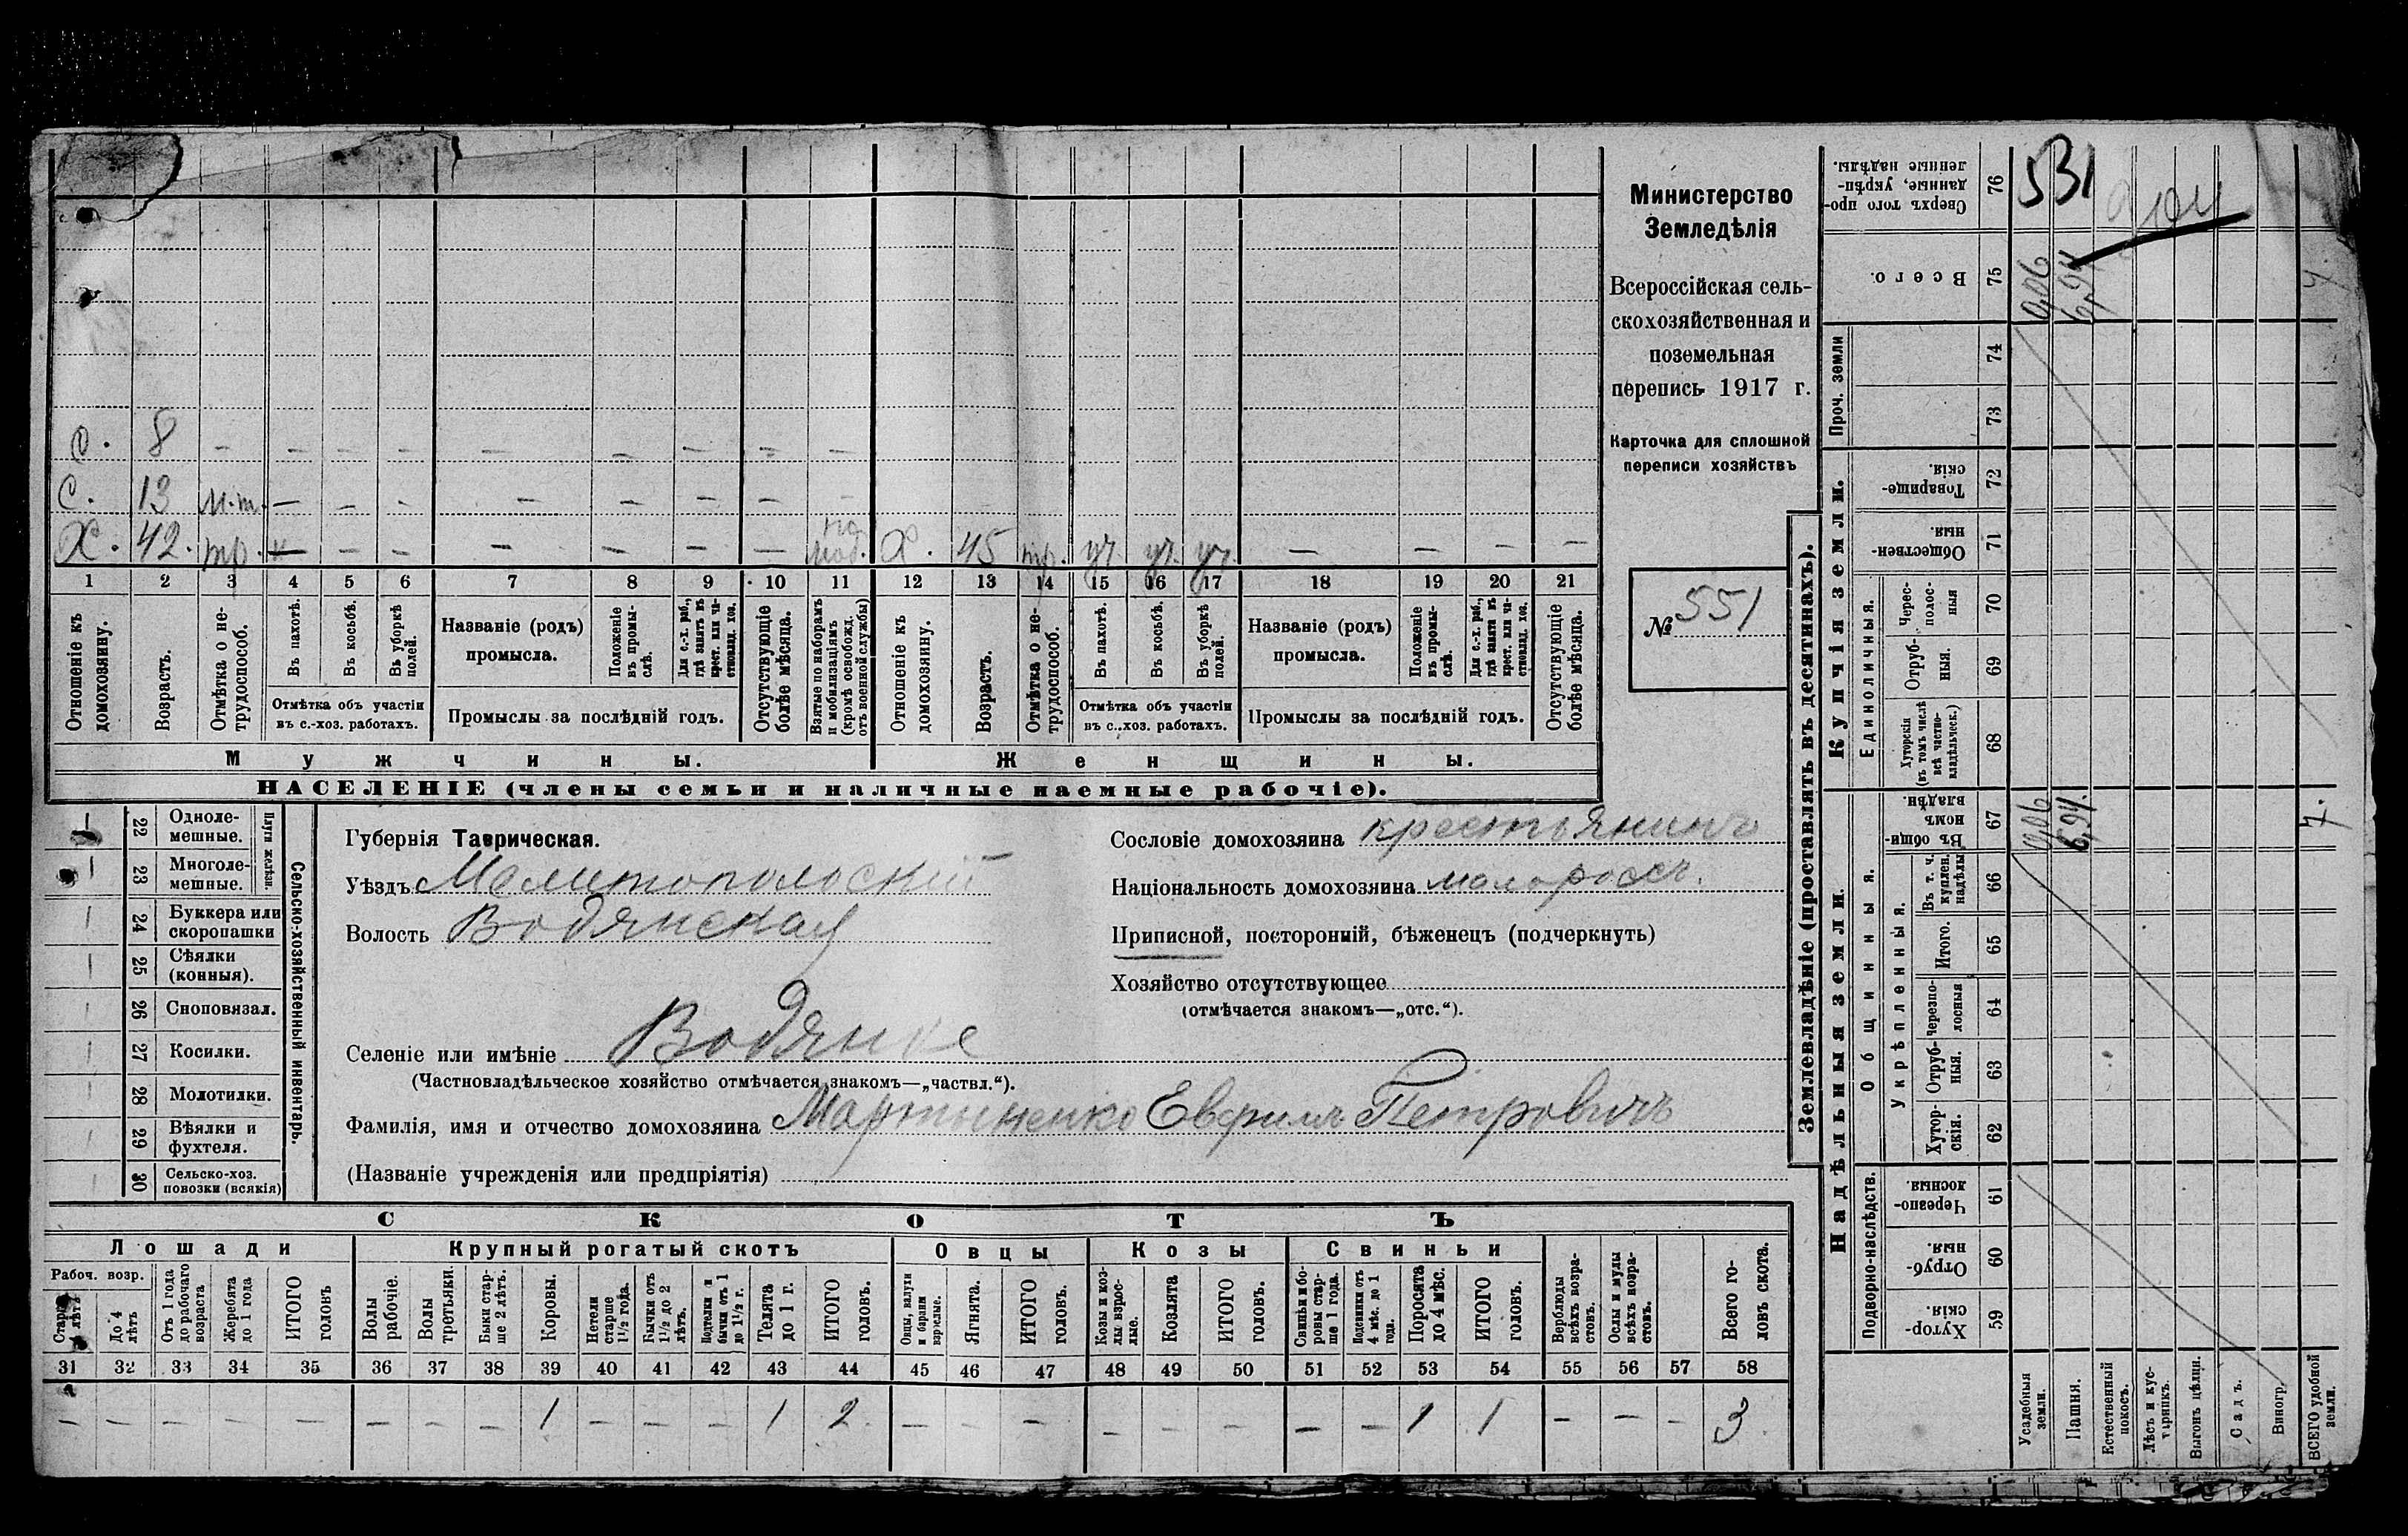 Министерство
Земледѣлія
Всероссійская сель-
скохозяйственная и
поземельная
перепись 1917 г.
Карточка для сплошной
переписи хозяйствъ
№ 551
531
О. 8 — — — — — — — — —
С. 13 н.т. — — — — — — — —
Х. 42. тр. — — — — — — — Х. 45 тр. уч. уч. уч. — — — —
1 2 3 4 5 6 7 8 9 10 11 12 13 14 15 16 17 18 19 20 21
Отношеніе къ домохозяину.
Возрастъ.
Отмѣтка о не-трудоспособ.
Въ пахотѣ.
Въ косьбѣ.
Въ уборкѣ полей.
Отмѣтка объ участіи
въ с.-хоз. работахъ.
Названіе (родъ)
промысла.
Положеніе въ промы-слѣ.
Для с.-х. раб., гдѣ занятъ въ крест. или ча-стновлад. хоз.
Промыслы за послѣдній годъ.
Отсутствующіе болѣе мѣсяца.
Взятые по наборамъ и мобилизаціямъ (кромѣ освобожд. отъ военной службы)
Отношеніе къ домохозяину.
Возрастъ.
Отмѣтка о не-трудоспособ.
Въ пахотѣ.
Въ косьбѣ.
Въ уборкѣ полей.
Отмѣтка объ участіи
въ с..хоз. работахъ.
Названіе (родъ)
промысла.
Положеніе въ промы-слѣ.
Для с.-х. раб., гдѣ занята въ крест. или ча-стновлад. хоз.
Промыслы за послѣдній годъ.
Отсутствующіе болѣе мѣсяца.
Мужчины.
Женщины.
НАСЕЛЕНІЕ (члены семьи и наличные наемные рабочіе).
Сельско-хозяйственный инвентарь.
Плуги желѣзн.
22 Одноле-мешные.
23 Многоле-мешные.
24 Буккера или скоропашки
25 Сѣялки (конныя).
26 Сноповязал.
27 Косилки.
28 Молотилки.
29 Вѣялки и фухтеля.
30 Сельско-хоз. повозки (всякія)
Губернія Таврическая.
Уѣздъ Мелитопольскій
Волость Водянская
Сословіе домохозяина крестьянинъ
Національность домохозяина малороссъ.
Приписной, посторонній, бѣженецъ (подчеркнуть)
Хозяйство отсутствующее
(отмѣчается знакомъ—„отс.“).
Селеніе или имѣніе Водяное
(Частновладѣльческое хозяйство отмѣчается знакомъ—„частвл.“).
Фамилія, имя и отчество домохозяина Мартыненко Евфимъ Петровичъ
(Названіе учрежденія или предпріятія)
СКОТЪ
Лошади
Крупный рогатый скотъ
Овцы
Козы
Свиньи
Рабоч. возр.
Старше 4 лѣтъ
До 4 лѣтъ
Отъ 1 года до рабочаго возраста
Жеребята до 1 года
ИТОГО головъ
Волы рабочіе.
Волы третьяки.
Быки стар-ше 2 лѣтъ.
Коровы.
Нетели старше 1½ года.
Бычки отъ 1½ до 2 лѣтъ.
Подтелки и бычки отъ 1 до 1½ г.
Телята до 1 г.
ИТОГО головъ.
Овцы, валухи и бараны взрослые.
Ягнята.
ИТОГО головъ.
Козы и коз-лы взрос-лые.
Козлята
ИТОГО головъ.
Свиньи и бо-ровы стар-ше 1 года.
Подсвинки отъ 4 мѣс. до 1 года.
Поросята до 4 мѣс.
ИТОГО головъ.
Верблюды всѣхъ возра-стовъ.
Ослы и мулы всѣхъ возра-стовъ.
Всего го-ловъ скота.
31 32 33 34 35 36 37 38 39 40 41 42 43 44 45 46 47 48 49 50 51 52 53 54 55 56 57 58
— — — — — — — — 1 — — — 1 2 — — — — — — — — 1 1 — — — 3
Землевладѣніе (проставлять въ десятинахъ).
Надѣльныя земли.
Купчія земли.
Проч. земли
Подворно-наслѣдств.
Общинныя.
Укрѣпленныя.
Единоличныя.
Сверхъ того про-данные, укрѣп-ленные надѣлы. 76
Всего. 75 0,06 6,94 7.
74
73
Товарище-скія. 72
Обществен-ныя. 71
Черес-полос-ныя 70
Отруб-ныя. 69
Хуторскія (въ томъ числѣ всѣ частно-владѣльческ.) 68
Въ общи-номъ владѣн. 67 0,06 6,94. 7.
Въ т. ч. куплен. надѣлы 66
Итого. 65
Черезпо-лосныя 64
Отруб-ныя. 63
Хутор-скія. 62
Черезпо-лосныя. 61
Отруб-ныя. 60
Хутор-скія. 59
Усадебныя земли.
Пашня.
Естественный покосъ.
Лѣсъ и кус-тарникъ.
Выгонъ цѣлин.
Садъ.
Виногр.
ВСЕГО удобной земли.